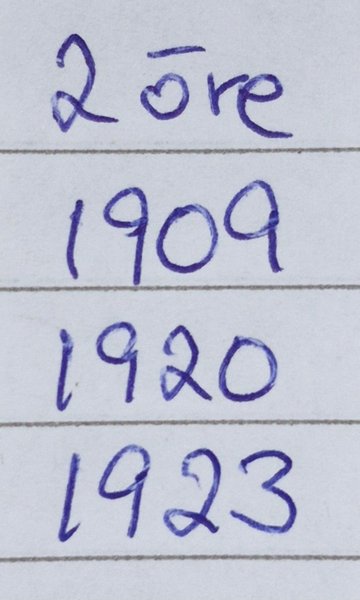 2 öre
1909
1920
1923